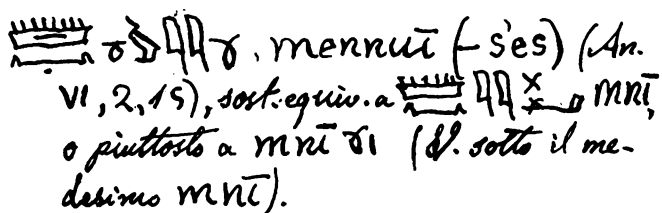 mennuī (-s'es) (An.
VI, 2, 15), sost. equiv. a mnī,
o piuttosto a mnī (V. sotto il me-
desimo mnī).